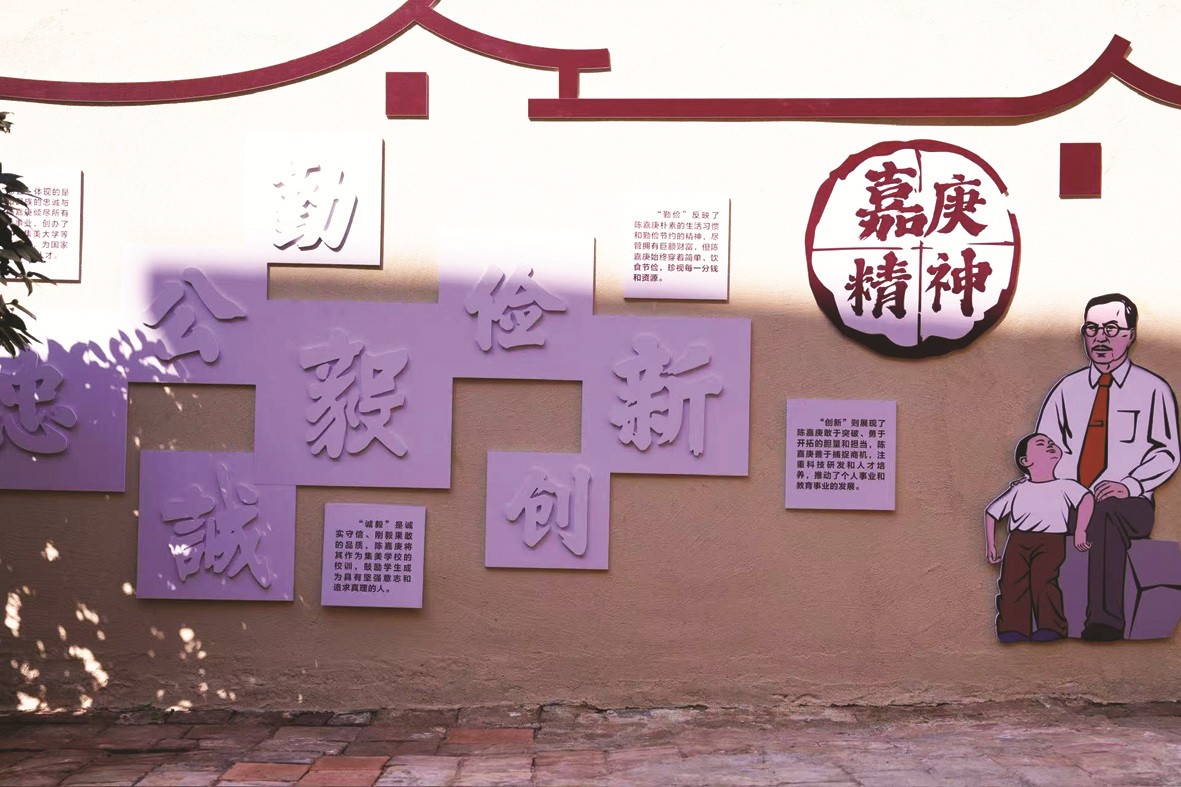 体现的是
族的忠诚与
嘉庚倾尽所有
事业，创办了
集美大学等
，为国家
才。
勤
公
俭
忠
毅
新
誠
创
“勤俭”反映了
陈嘉庚朴素的生活习惯
和勤俭节约的精神，尽
管拥有巨额财富，但陈
嘉庚始终穿着简单、饮
食节俭，珍视每一分钱
和资源。
嘉庚
精神
“诚毅”是诚
实守信、刚毅果敢
的品质，陈嘉庚将
其作为集美学校的
校训，鼓励学生成
为具有坚强意志和
追求真理的人。
“创新”则展现了
陈嘉庚敢于突破、勇于
开拓的胆量和担当，陈
嘉庚善于捕捉商机，注
重科技研发和人才培
养，推动了个人事业和
教育事业的发展。